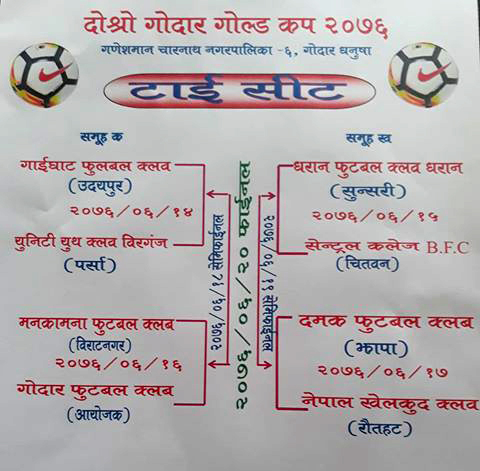 दोश्रो गोदार गोल्ड कप २०७६
गणेशमान चारनाथ नगरपालिका -६, गोदार धनुषा
टाई सीट
समूह क
गाईघाट फुलबल क्लव
(उदयपुर)
२०७६/०६/१४
युनिटी युथ क्लव विरगंज
(पर्सा)
मनकामना फुटबल क्लब
(विराटनगर)
२०७६/०६/१६
गोदार फुटबल क्लब
(आयोजक)
२०७६/०६/१८ सेमिफाईनल
२०७६/०६/२० फाईनल
२०७६/०६/१९ सेमिफाईनल
समूह ख
धरान फुटबल क्लव धरान
(सुन्सरी)
२०७६/०६/१५
सेन्ट्रल कलेज B.F.C
(चितवन)
दमक फुटबल क्लव
(झापा)
२०७६/०६/१७
नेपाल खेलकुद क्लव
(रौतहट)